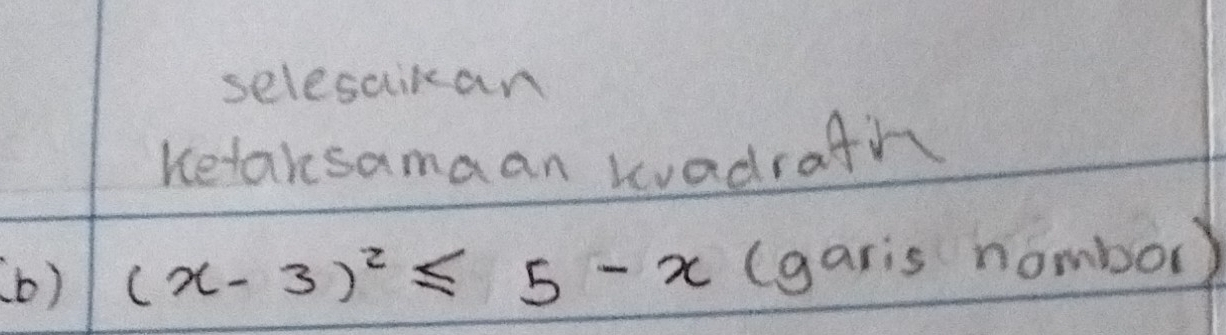 selesaikan
ketaksamaan kuadratik
(b) (x - 3)² ≤ 5 - x (garis nombor)